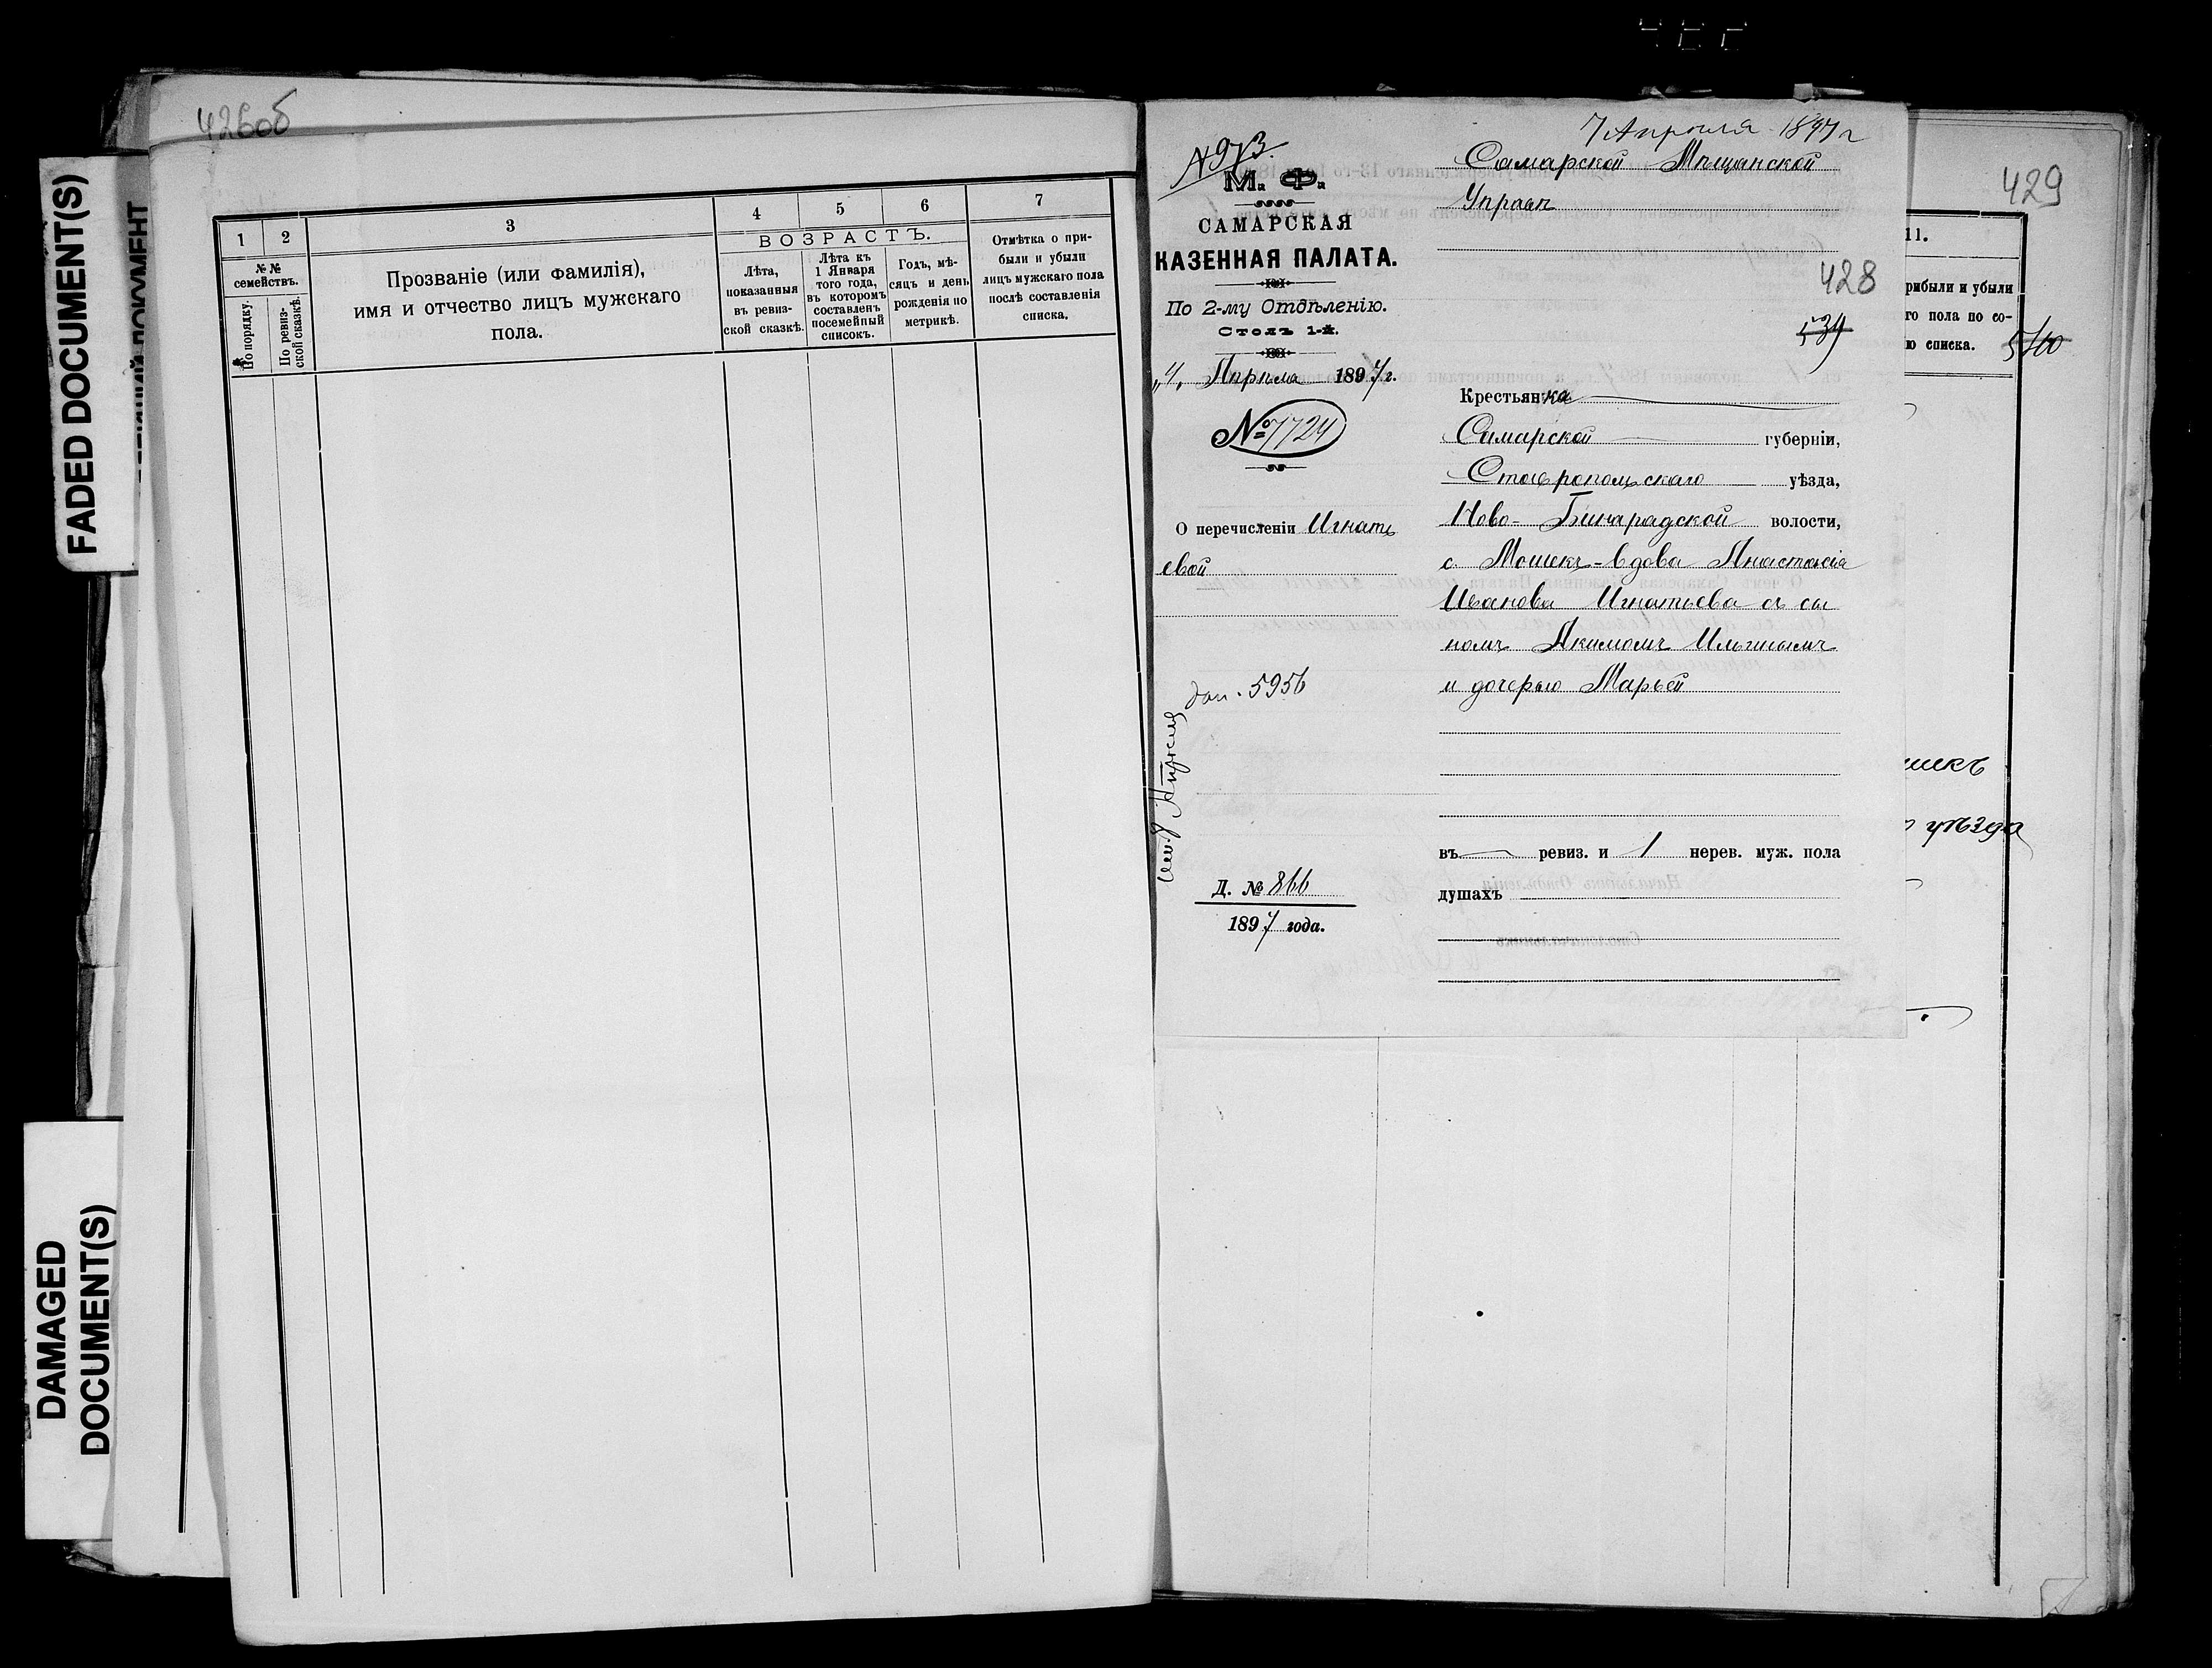 426об
FADED DOCUMENT(S)
DAMAGED
DOCUMENT(S)
1
2
3
4
5
6
7
№№
семействъ.
По порядку.
По ревиз-
ской сказкѣ.
Прозваніе (или фамилія),
имя и отчество лицъ мужскаго
пола.
ВОЗРАСТЪ.
Лѣта,
показанныя
въ ревиз-
ской сказкѣ.
Лѣта къ
1 Января
того года,
въ которомъ
составленъ
посемейный
списокъ.
Годъ, мѣ-
сяцъ и день
рожденія по
метрикѣ.
Отмѣтка о при-
были и убыли
лицъ мужскаго пола
послѣ составленія
списка.
№ 973.
М. Ф.
САМАРСКАЯ
КАЗЕННАЯ ПАЛАТА.
По 2-му Отдѣленію.
Столъ 1-й.
„4" Апрѣля 1897 г.
№ 7724
О перечисленіи Игнать
евой
5956
Д. № 866
1897 года.
7 Апреля 1897 г
Самарской Мѣщанской
Управѣ
428
539
Крестьянка
Самарской губерніи,
Ставропольскаго уѣзда,
Ново-Бинарадской волости,
с. Мошекъ-вдова Анастасія
Иванова Игнатьева съ сы
номъ Акимомъ Ильинымъ
и дочерью Марьей
въ — ревиз. и 1 нерев. муж. пола
душахъ
429
11.
рибыли и убыли
го пола по со-
ю списка.
540
шекъ
уѣзда